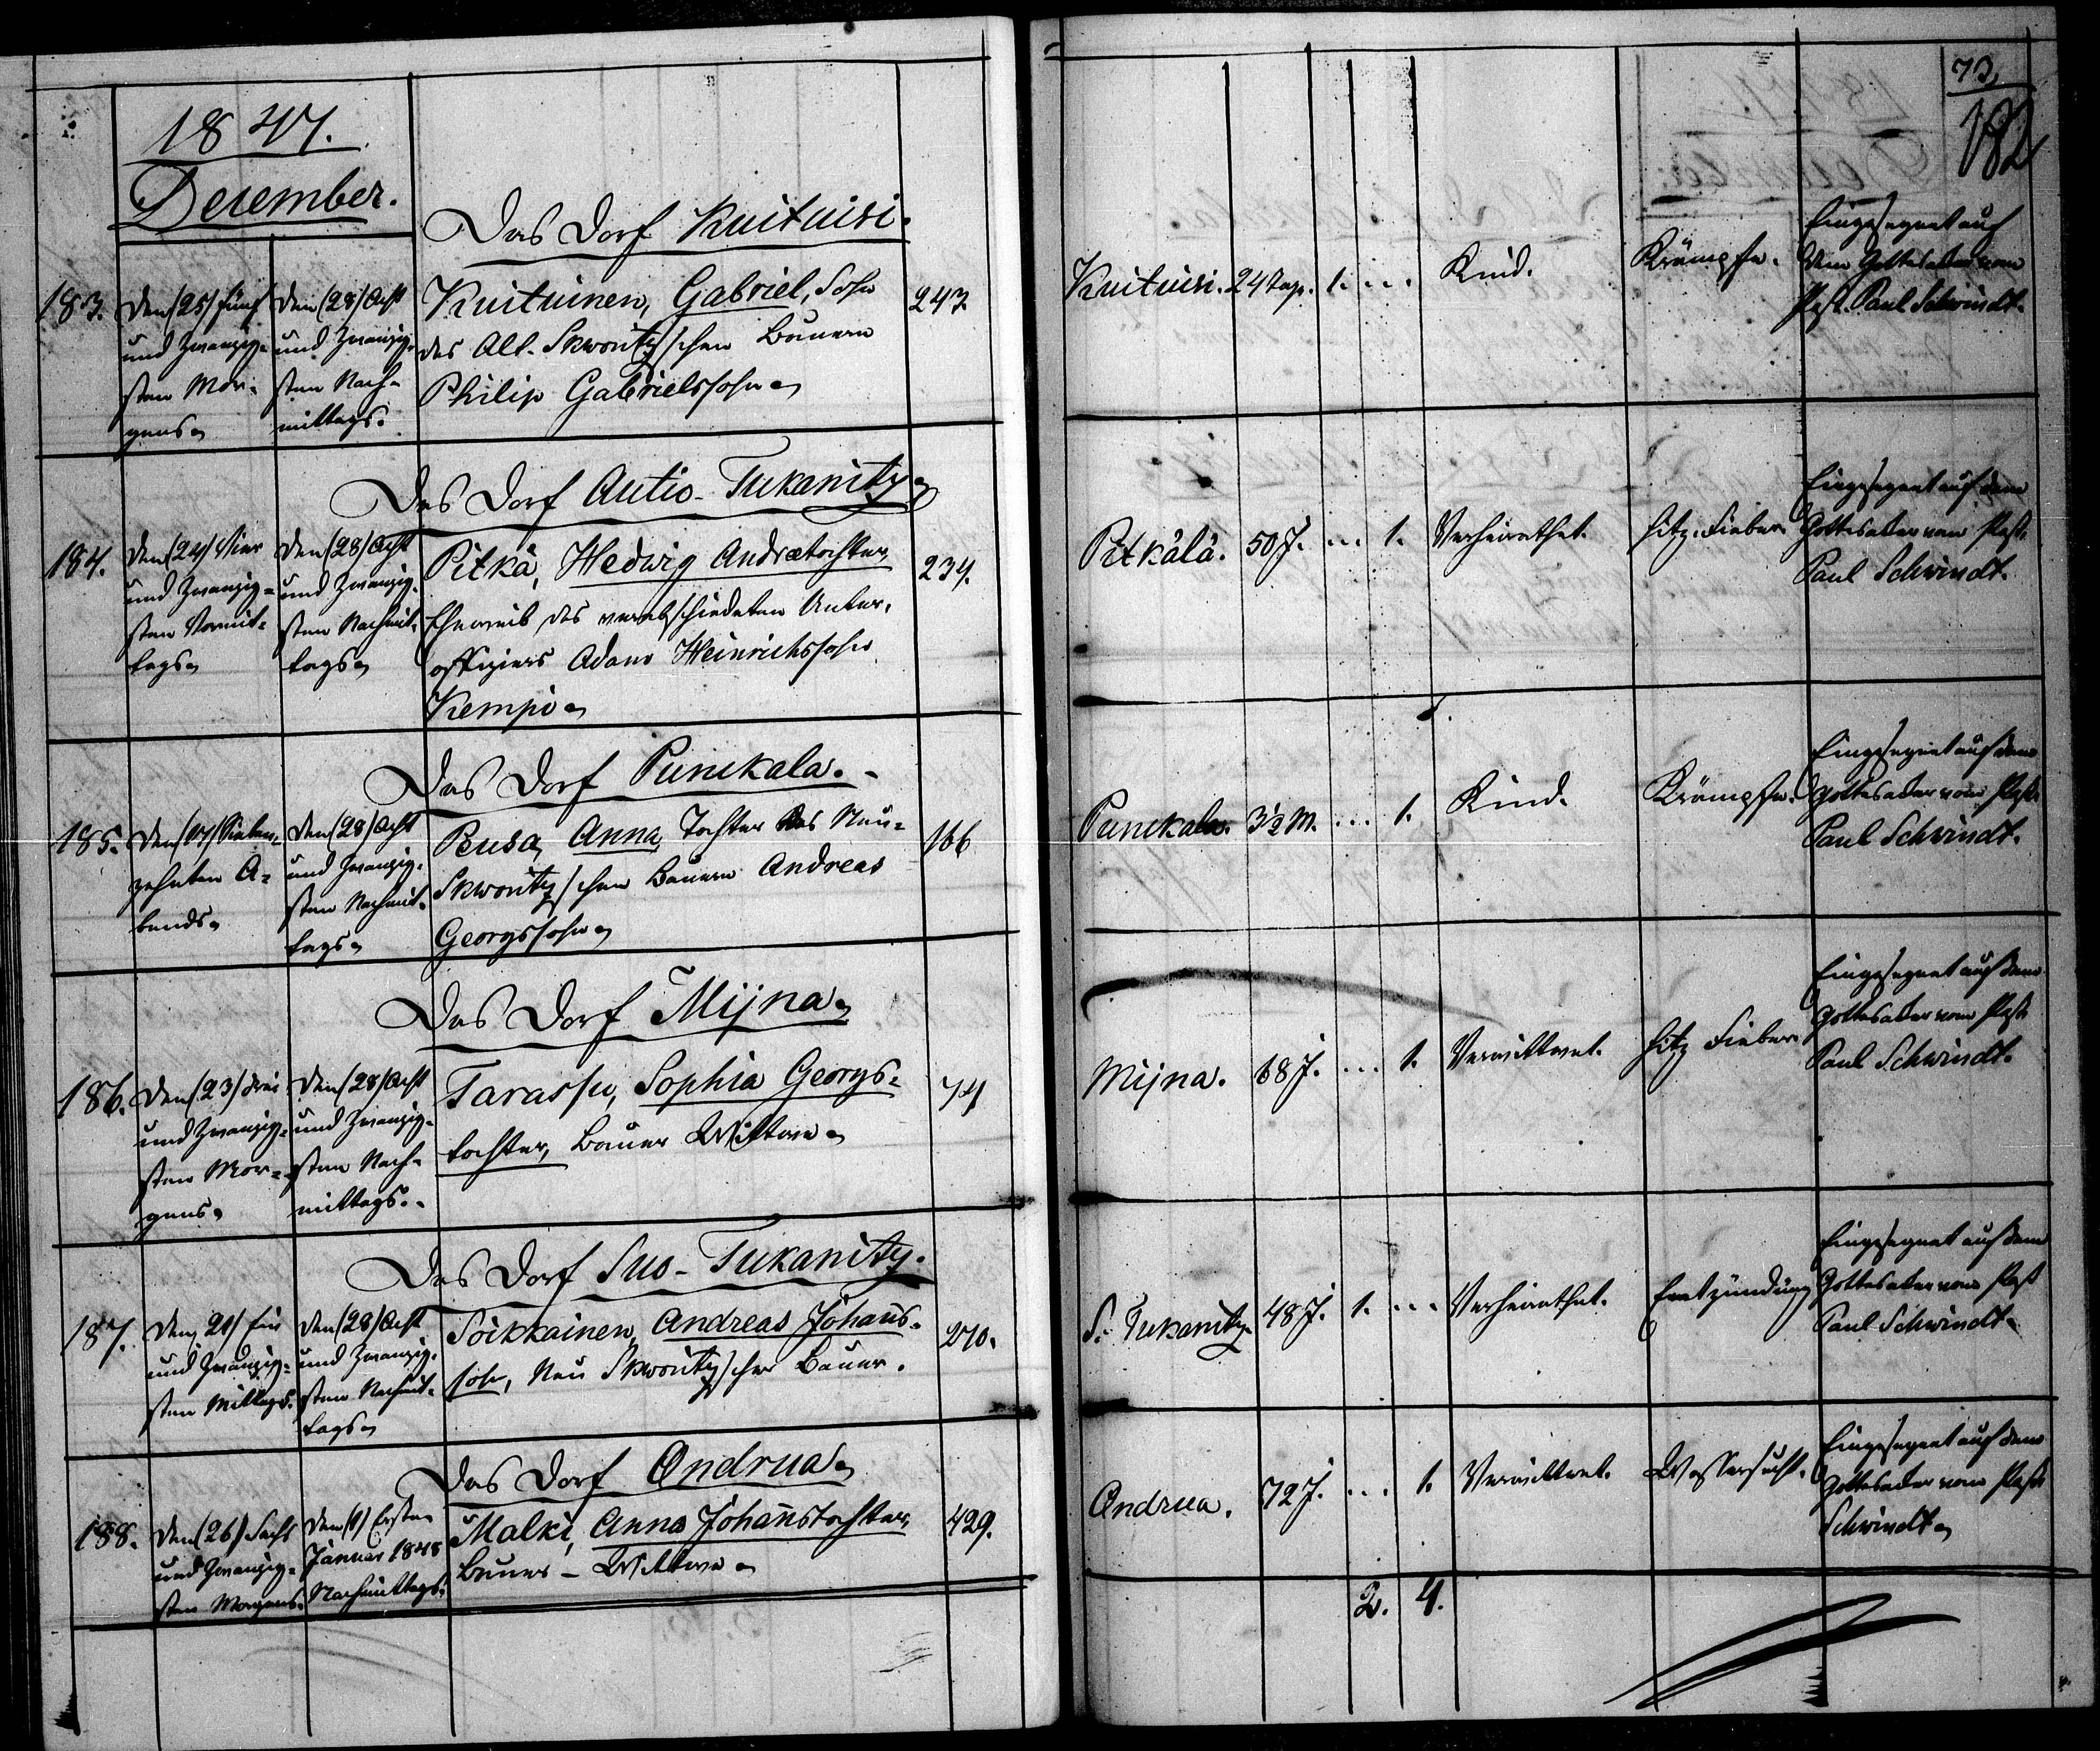 1847.
December.
Das Dorf Kuituisi.
183.
Den (25) fünf
und Zwanzig-
sten Mor-
gens
Den (28) Acht
und Zwanzig-
sten Nach-
mittags.
Kuituinen, Gabriel, Sohn
des Alt-Skworitzschen Bauern
Philip Gabrielssohn
247
Das Dorf Autio-Tukanitz
184.
Den (24) Vier
und Zwanzig-
sten Vormit-
tags
Den (28) Acht
und Zwanzig-
sten Nachmit-
tags
Pitkä, Hedwig Andreætochter,
Eheweib des verabschiedeten Unter-
offiziers Adam Heinrichssohn
Kempi
234.
Das Dorf Punikala.
185.
Den (17) Sieben-
zehnten A-
bends
Den (28) Acht
und Zwanzig-
sten Nachmit-
tags
Busa, Anna, Tochter des Neu-
Skworitzschen Bauern Andreas
Georgssohn
166
Das Dorf Mijna
186.
Den (23) drei
und Zwanzig-
sten Mor-
gens
Den (28) Acht
und Zwanzig-
sten Nach-
mittags.
Tarassu, Sophia Georgs-
tochter, Bauer Wittwe
74
Das Dorf Suo-Tukanitz.
187.
Den 21) Ein
und Zwanzig-
sten Mittags.
Den (28) Acht
und Zwanzig-
sten Nachmit-
tags
Soikkainen, Andreas Johans-
sohn, Neu Skworitzscher Bauer.
270.
Das Dorf Ondrua
188.
Den (26) Sechs
und Zwanzig-
sten Morgens.
Den (1) Ersten
Januar 1848
Nachmittags.
Malki, Anna Johanstochter,
Bauer-Wittwe
429.
73.
182
Kuituisi. 24 Tage. 1. ... Kind. Krämpfe.
Eingesegnet auf
dem Gottesacker vom
Past. Paul Schwindt.
Pitkälä. 50 J. ... 1. Verheirathet. hitz. Fieber.
Eingesegnet auf dem
Gottesacker vom Past.
Paul Schwindt.
Punikala. 3½ M. ... 1. Kind. Krämpfe.
Eingesegnet auf dem
Gottesacker vom Past.
Paul Schwindt.
Mijna. 68 J. ... 1. Verwittwet. hitz Fieber.
Eingesegnet auf dem
Gottesacker vom Past.
Paul Schwindt.
S. Tukanitz 48 J. 1. ... Verheirathet. Entzündung
Eingesegnet auf dem
Gottesacker vom Past
Paul Schwindt.
Ondrua. 72 J. ... 1. Verwittwet. Wassersucht.
Eingesegnet auf dem
Gottesacker vom Past.
Schwindt
2. 4.